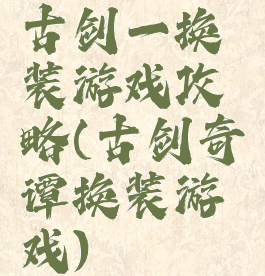 古剑一换
装游戏攻
略(古剑奇
谭换装游
戏)